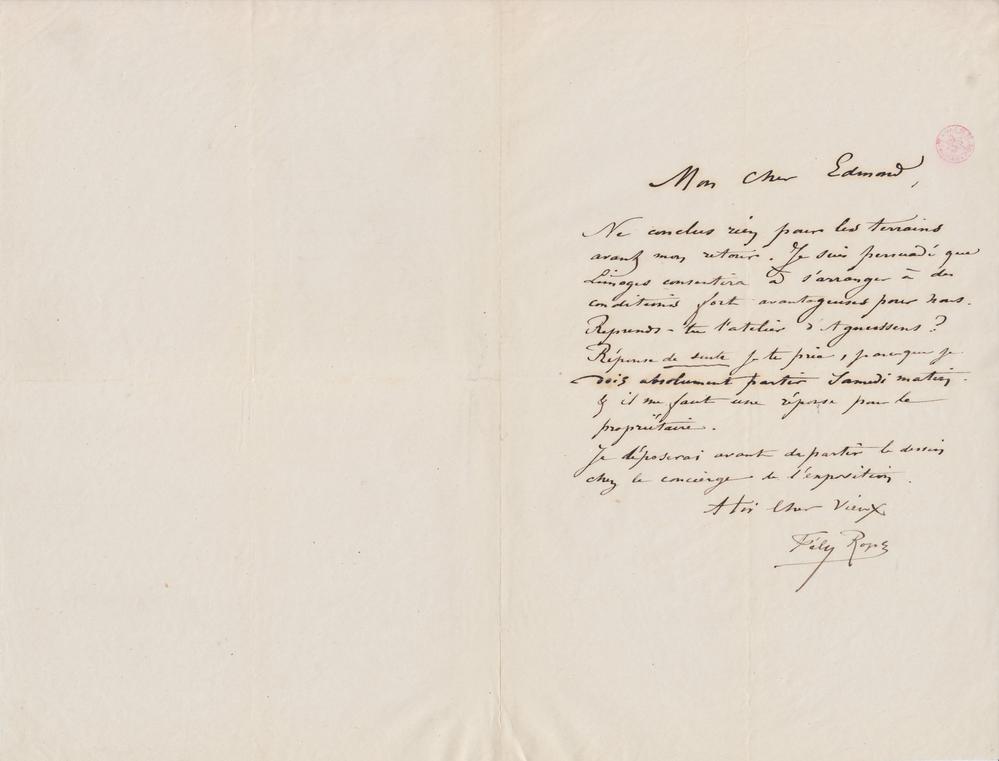 Mon Cher Edmond,
Ne conclus rien pour les terrains
avant mon retour. Je suis persuadé que
Limoges consentira à s'arranger à des
conditions fort avantageuses pour nous.
Reprends-tu l'atelier d'Agneessens?
Réponse de suite je te prie, parceque je
dois absolument partir Samedi matin.
& il me faut une réponse pour le
propriétaire.
Je déposerai avant de partir le dessin
chez le concierge de l'exposition.
A toi Cher Vieux
Fély Rops